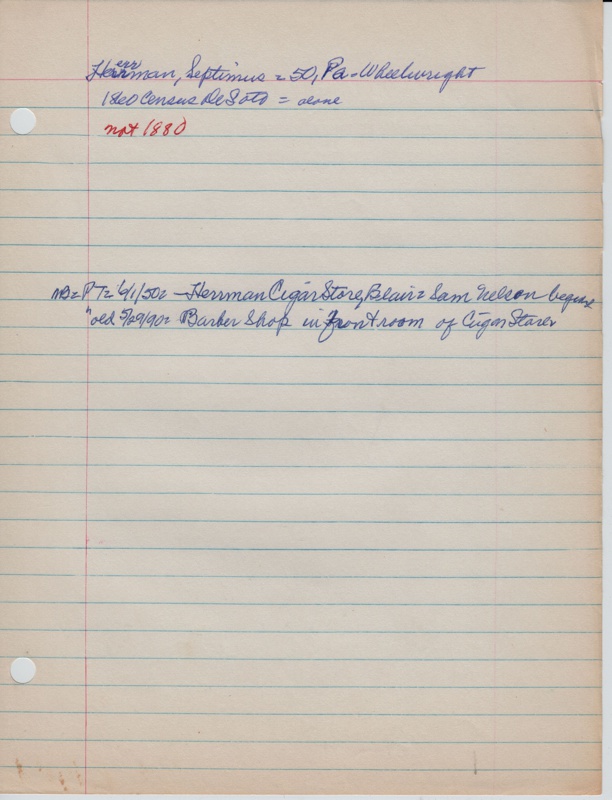 err
Herrman, Septimus = 50, Pa - Wheelwright
1860 Census DeSoto = alone
not 1880
MB = PT = 6/1/50 = - Herrman Cigar Store, Blair = Sam Nelson
"old 5/29/90 = Barber Shop in front room of Cigar Store